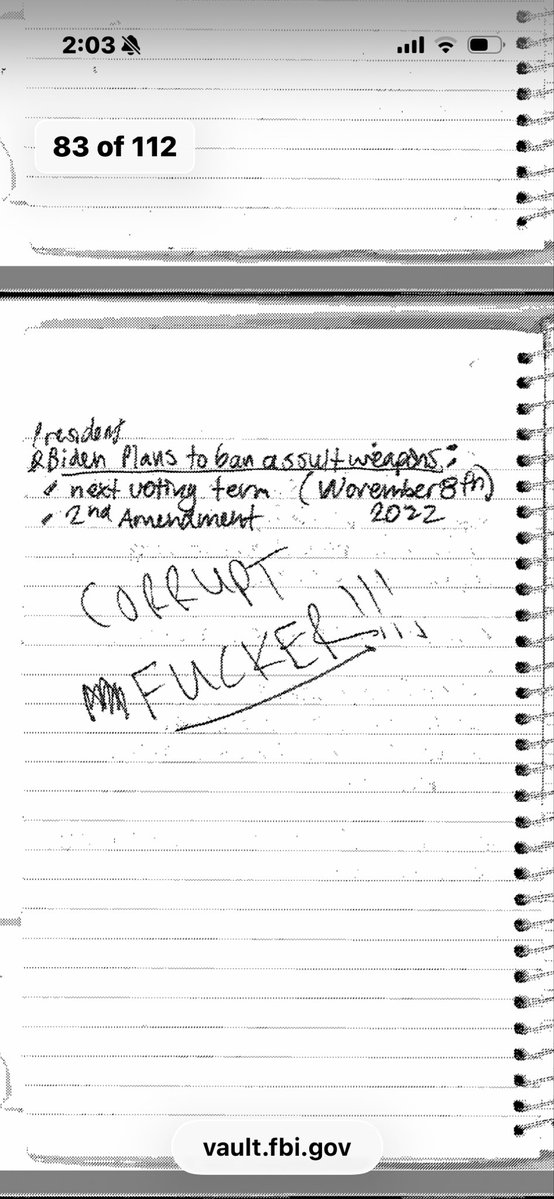 2:03
83 of 112
President
& Biden Plans to ban assult weapons:
next voting term (Wovember 8th)
2nd Amendment 2022
CORRUPT
FUCKER!!!
vault.fbi.gov